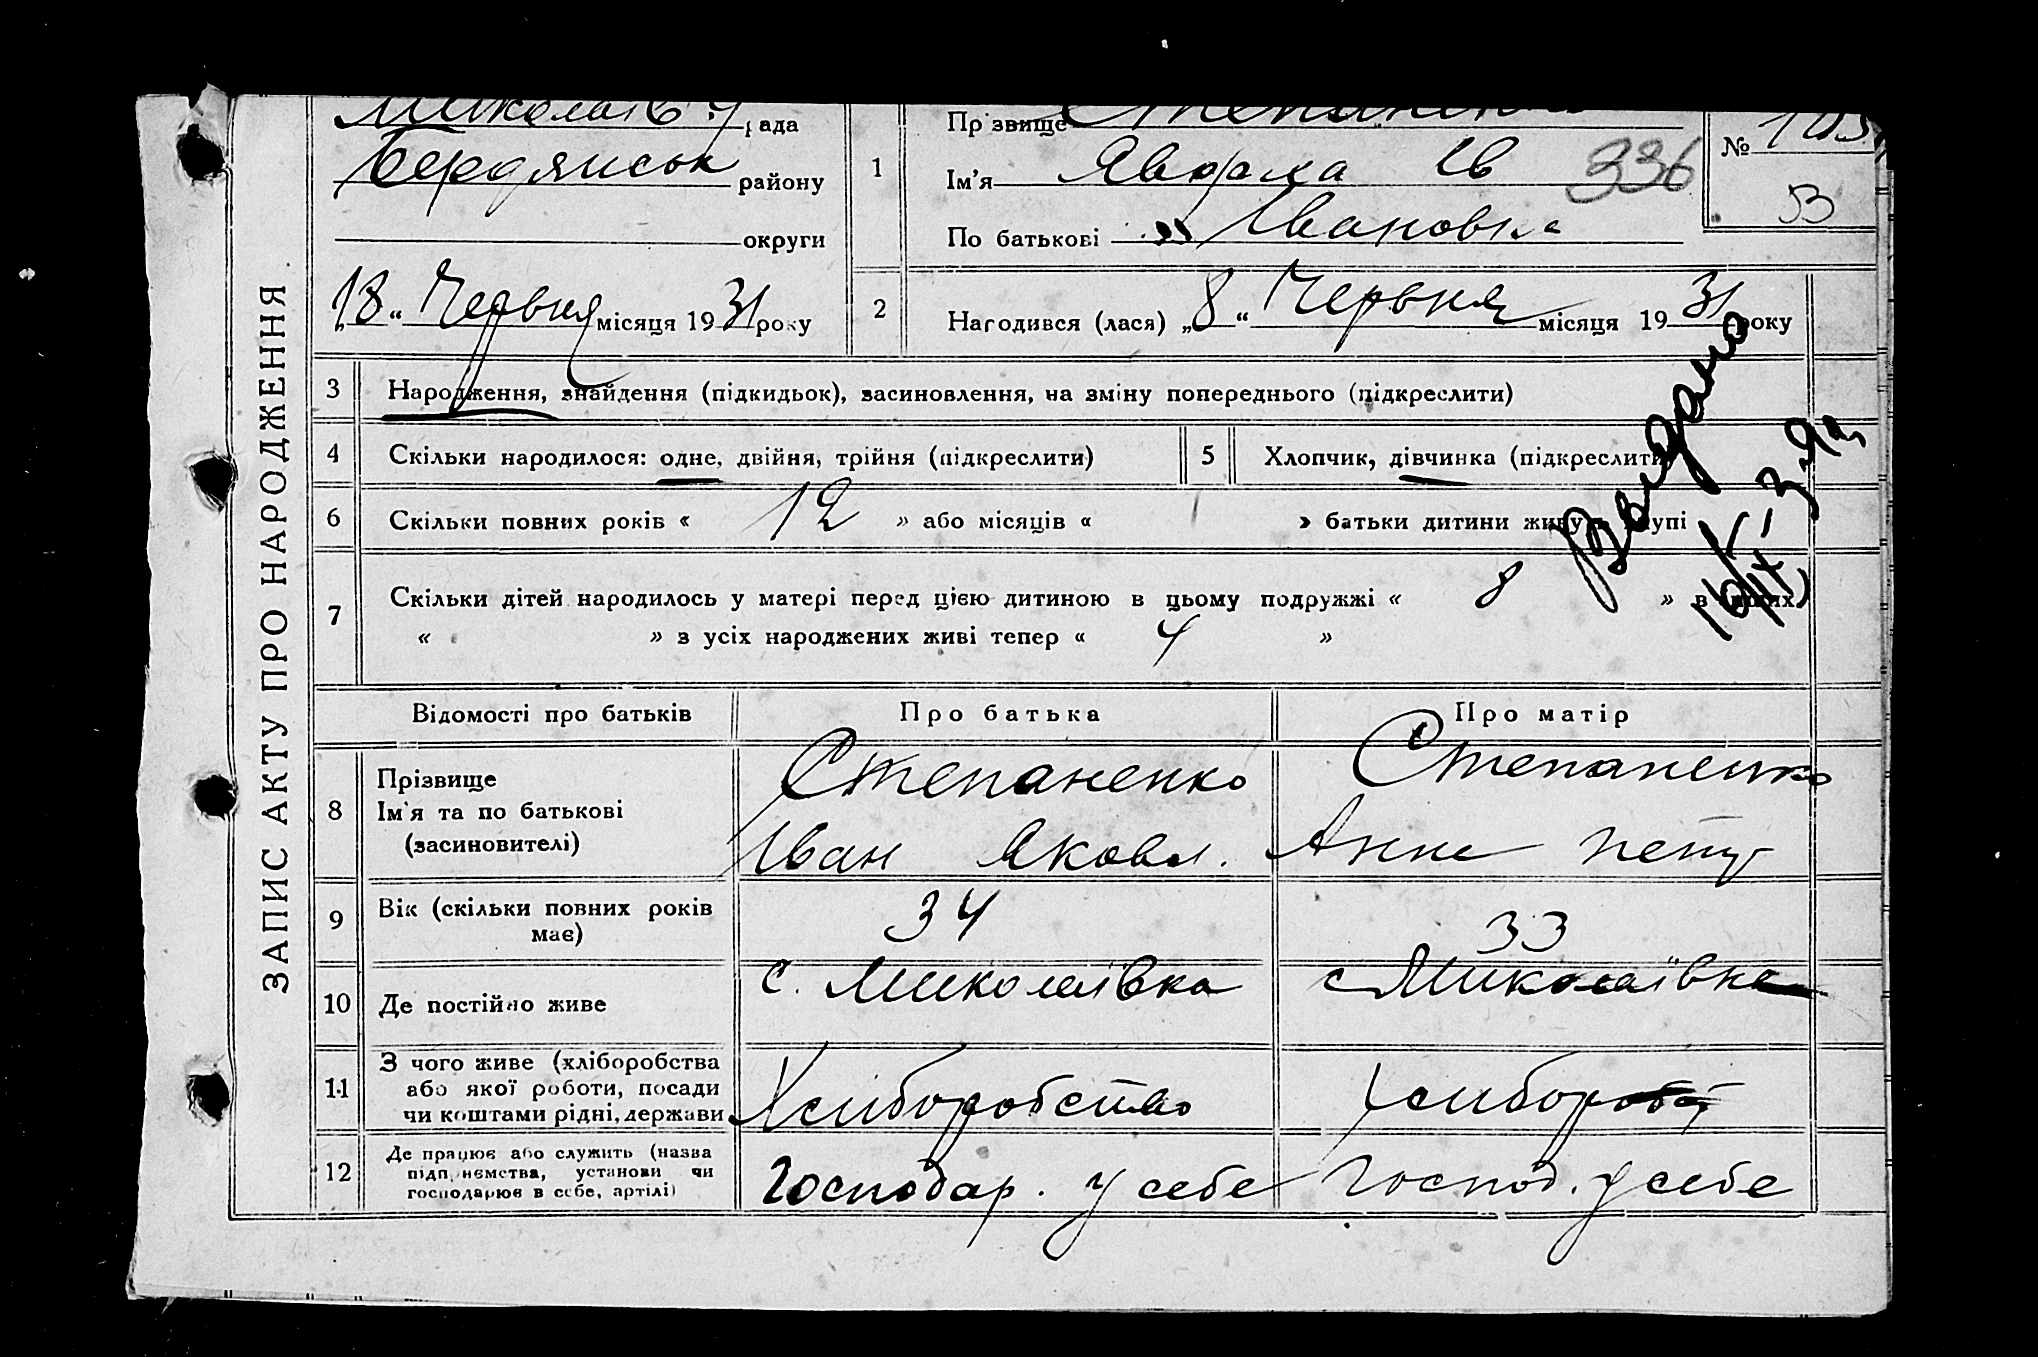 ЗАПИС АКТУ ПРО НАРОДЖЕННЯ
рада
Бердянськ району
округи
„18“ Червня місяця 1931 року
1
Прізвище Степаненко
Ім'я Явдоха Ів
По батькові Івановна
336
№
53
2
Народився (лася) „8“ Червня місяця 1931 року
3 Народження, знайдення (підкидьок), засиновлення, на зміну попереднього (підкреслити)
4 Скільки народилося: одне, двійня, трійня (підкреслити)
5 Хлопчик, дівчинка (підкреслити)
6 Скільки повних років « 12 » або місяців « » батьки дитини живуть вкупі
7 Скільки дітей народилось у матері перед цією дитиною в цьому подружжі « 8 » в інших
« » з усіх народжених живі тепер « 4 »
Видано
Відомості про батьків Про батька Про матір
8 Прізвище
Ім'я та по батькові
(засиновителі)
Степаненко
Іван Яковл.
Степаненко
Анна Петр
9 Вік (скільки повних років
має)
34
33
10 Де постійно живе
с. Миколаївка
с Миколаївка
11 З чого живе (хліборобства
або якої роботи, посади
чи коштами рідні, держави
Хліборобство
Хлібороб
12 Де працює або служить (назва
підприємства, установи чи
господарює в себе, артілі)
Господар. у себе
Господ. у себе